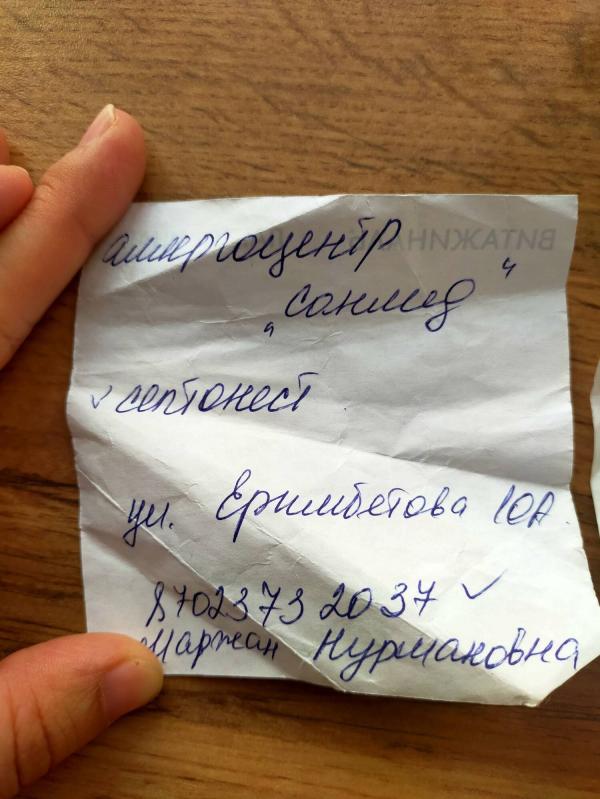 аллергоцентр
"Санмед"
✓ септонест
ул. Еримбетова 10А.
8702 373 2037 ✓
Маржан Нурмановна